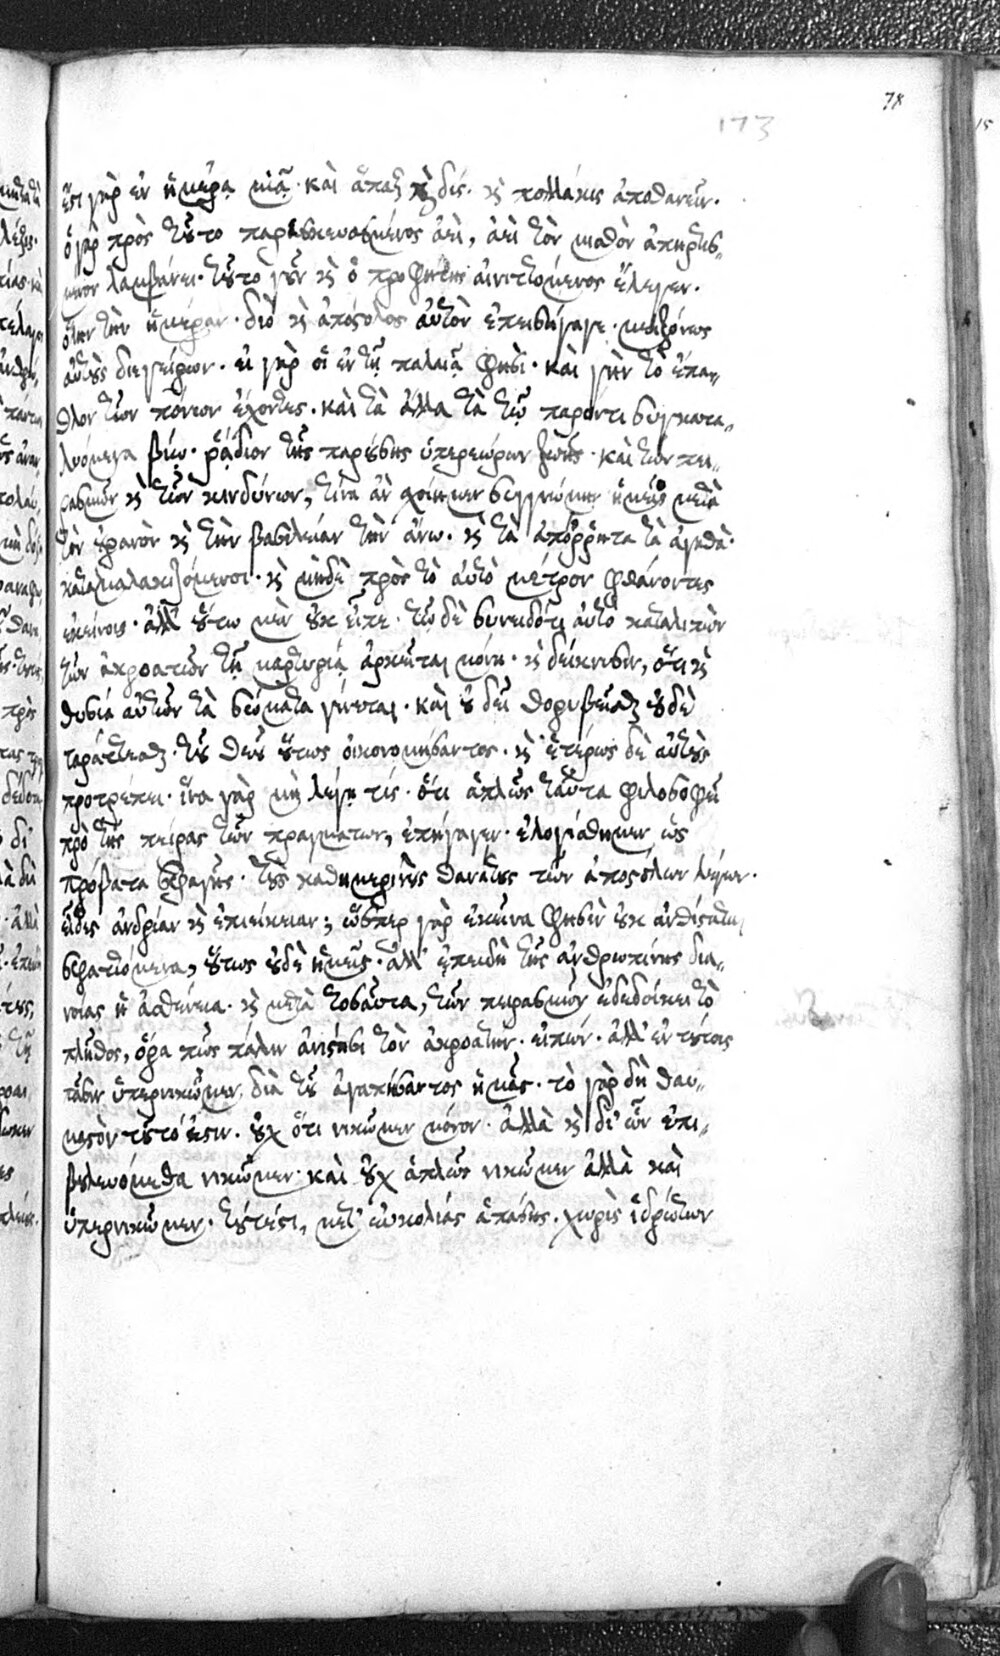 78
173
ἔστι γὰρ ἐν ἡμέρᾳ μιᾷ· καὶ ἅπαξ καὶ δίς· καὶ πολλάκις ἀποθανεῖν·
ὁ γὰρ πρὸς τοῦτο παρεσκευασμένος ἀεὶ, ἀεὶ τὸν μισθὸν ἀπηρτισ„
μένον λαμβάνει· τοῦτο γοῦν καὶ ὁ προφήτης αἰνιττόμενος ἔλεγεν·
ὅλην τὴν ἡμέραν· διὸ καὶ ἀπόστολος αὐτὸν ἐπεισήγαγε· μειζόνως
αὐτοὺς διεγείρων· εἰ γὰρ οἱ ἐν τῇ παλαιᾷ φησὶ· καὶ γῆν τὸ ἔπα„
θλον τῶν πόνων ἔχοντες· καὶ τὰ ἄλλα τὰ τῷ παρόντι συγκατα„
λυόμενα βίῳ· ῥᾴδιον τῆς παρούσης ὑπερεώρων ζωῆς· καὶ τῶν πει„
ρασμῶν καὶ τῶν κινδύνων, τίνα ἂν σχοίημεν συγγνώμην ἡμεῖς μετὰ
τὸν οὐρανὸν καὶ τὴν βασιλείαν τὴν ἄνω· καὶ τὰ ἀπόῤῥητα τὰ ἀγαθὰ·
καταμαλακιζόμενοι· καὶ μηδὲ πρὸς τὸ αὐτὸ μέτρον φθάνοντες
ἐκείνοις· ἀλλ' οὕτω μὲν οὐκ εἶπε· τῷ δὲ συνειδότι αὐτὸ καταλιπὼν
τῶν ἀκροατῶν τῇ μαρτυρίᾳ ἀρκεῖται μόνῃ· καὶ δείκνυσιν, ὅτι καὶ
θυσία αὐτῶν τὰ σώματα γίνεται· καὶ οὐ δεῖ θορυβεῖσθαι οὐδὲ
ταράττεσθαι· τοῦ θεοῦ οὕτως οἰκονομήσαντος· καὶ ἑτέρως δὲ αὐτοὺς
προτρέπει· ἵνα γὰρ μὴ λέγῃ τίς· ὅτι ἁπλῶς ταῦτα φιλοσοφεῖ
πρὸ τῆς πείρας τῶν πραγμάτων, ἐπήγαγεν· ἐλογίσθημεν ὡς
πρόβατα σφαγῆς· τοὺς καθημερινοὺς θανάτους τῶν ἀποστόλων λέγων·
εἶδες ἀνδρίαν καὶ ἐπιείκειαν; ὥσπερ γὰρ ἐκεῖνα φησὶν οὐκ ἀνθίσταται
σφαττόμενα, οὕτως οὐδὲ ἡμεῖς· ἀλλ' ἐπειδὴ τῆς ἀνθρωπίνης δια„
νοίας ἡ ἀσθένεια· καὶ μετὰ τοσαῦτα, τῶν πειρασμῶν ἐδεδοίκει τὸ
πλῆθος, ὅρα πῶς πάλιν ἀνίστησι τὸν ἀκροατὴν· εἰπών· ἀλλ' ἐν τούτοις
πᾶσιν ὑπερνικῶμεν, διὰ τοῦ ἀγαπήσαντος ἡμᾶς· τὸ γὰρ δὴ θαυ„
μαστὸν τοῦτό ἐστιν· οὐχ ὅτι νικῶμεν μόνον· ἀλλὰ καὶ δι' ὧν ἐπι„
βουλευόμεθα νικῶμεν· καὶ οὐχ ἁπλῶς νικῶμεν ἀλλὰ καὶ
ὑπερνικῶμεν· τουτέστι, μετ' εὐκολίας ἁπάσης· χωρὶς ἱδρώτων